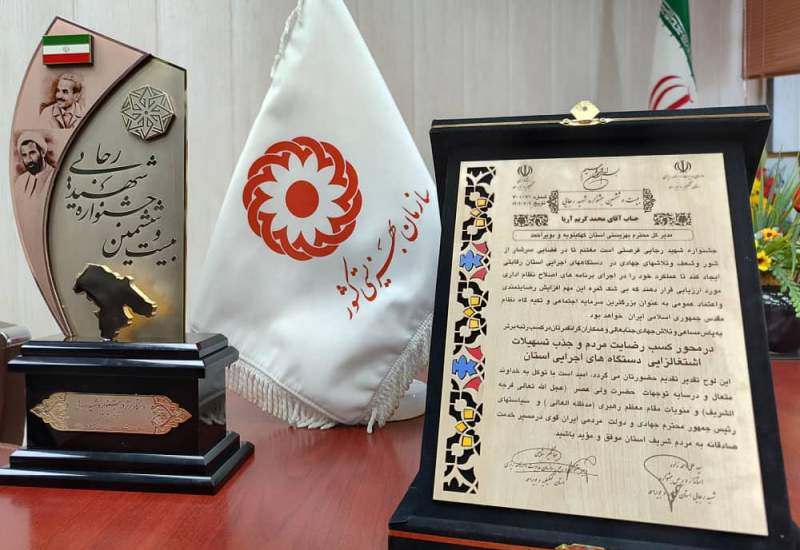 جشنواره شهید رجایی
بیست و ششمین
سازمان بهزیستی کشور
بیست و ششمین جشنواره شهید رجایی
جناب آقای محمد کریم آریا
مدیر کل محترم بهزیستی استان کهگیلویه و بویراحمد
جشنواره شهید رجایی فرصتی است مغتنم تا در فضایی سرشار از
شور وشعف وتلاشهای جهادی در دستگاههای اجرایی استان رقابتی
ایجاد کند تا عملکرد خود را در اجرای برنامه های اصلاح نظام اداری
مورد ارزیابی قرار دهند که بی شک ثمره این مهم افزایش رضایتمندی
واعتماد عمومی به عنوان بزرگترین سرمایه اجتماعی و تکیه گاه نظام
مقدس جمهوری اسلامی ایران خواهد بود.
به پاس مساعی و تلاش جهادی جنابعالی و همکاران گرانقدرتان در کسب رتبه برتر
در محور کسب رضایت مردم و جذب تسهیلات
اشتغالزایی دستگاه های اجرایی استان
این لوح تقدیر تقدیم حضورتان می گردد. امید است با توکل به خداوند
متعال و درسایه توجهات حضرت ولی عصر (عجل الله تعالی فرجه
الشریف) و منویات مقام معظم رهبری (مدظله العالی) و سیاستهای
رئیس جمهور محترم جهادی و دولت مردمی ایران قوی درمسیر خدمت
صادقانه به مردم شریف استان موفق و مؤید باشید.